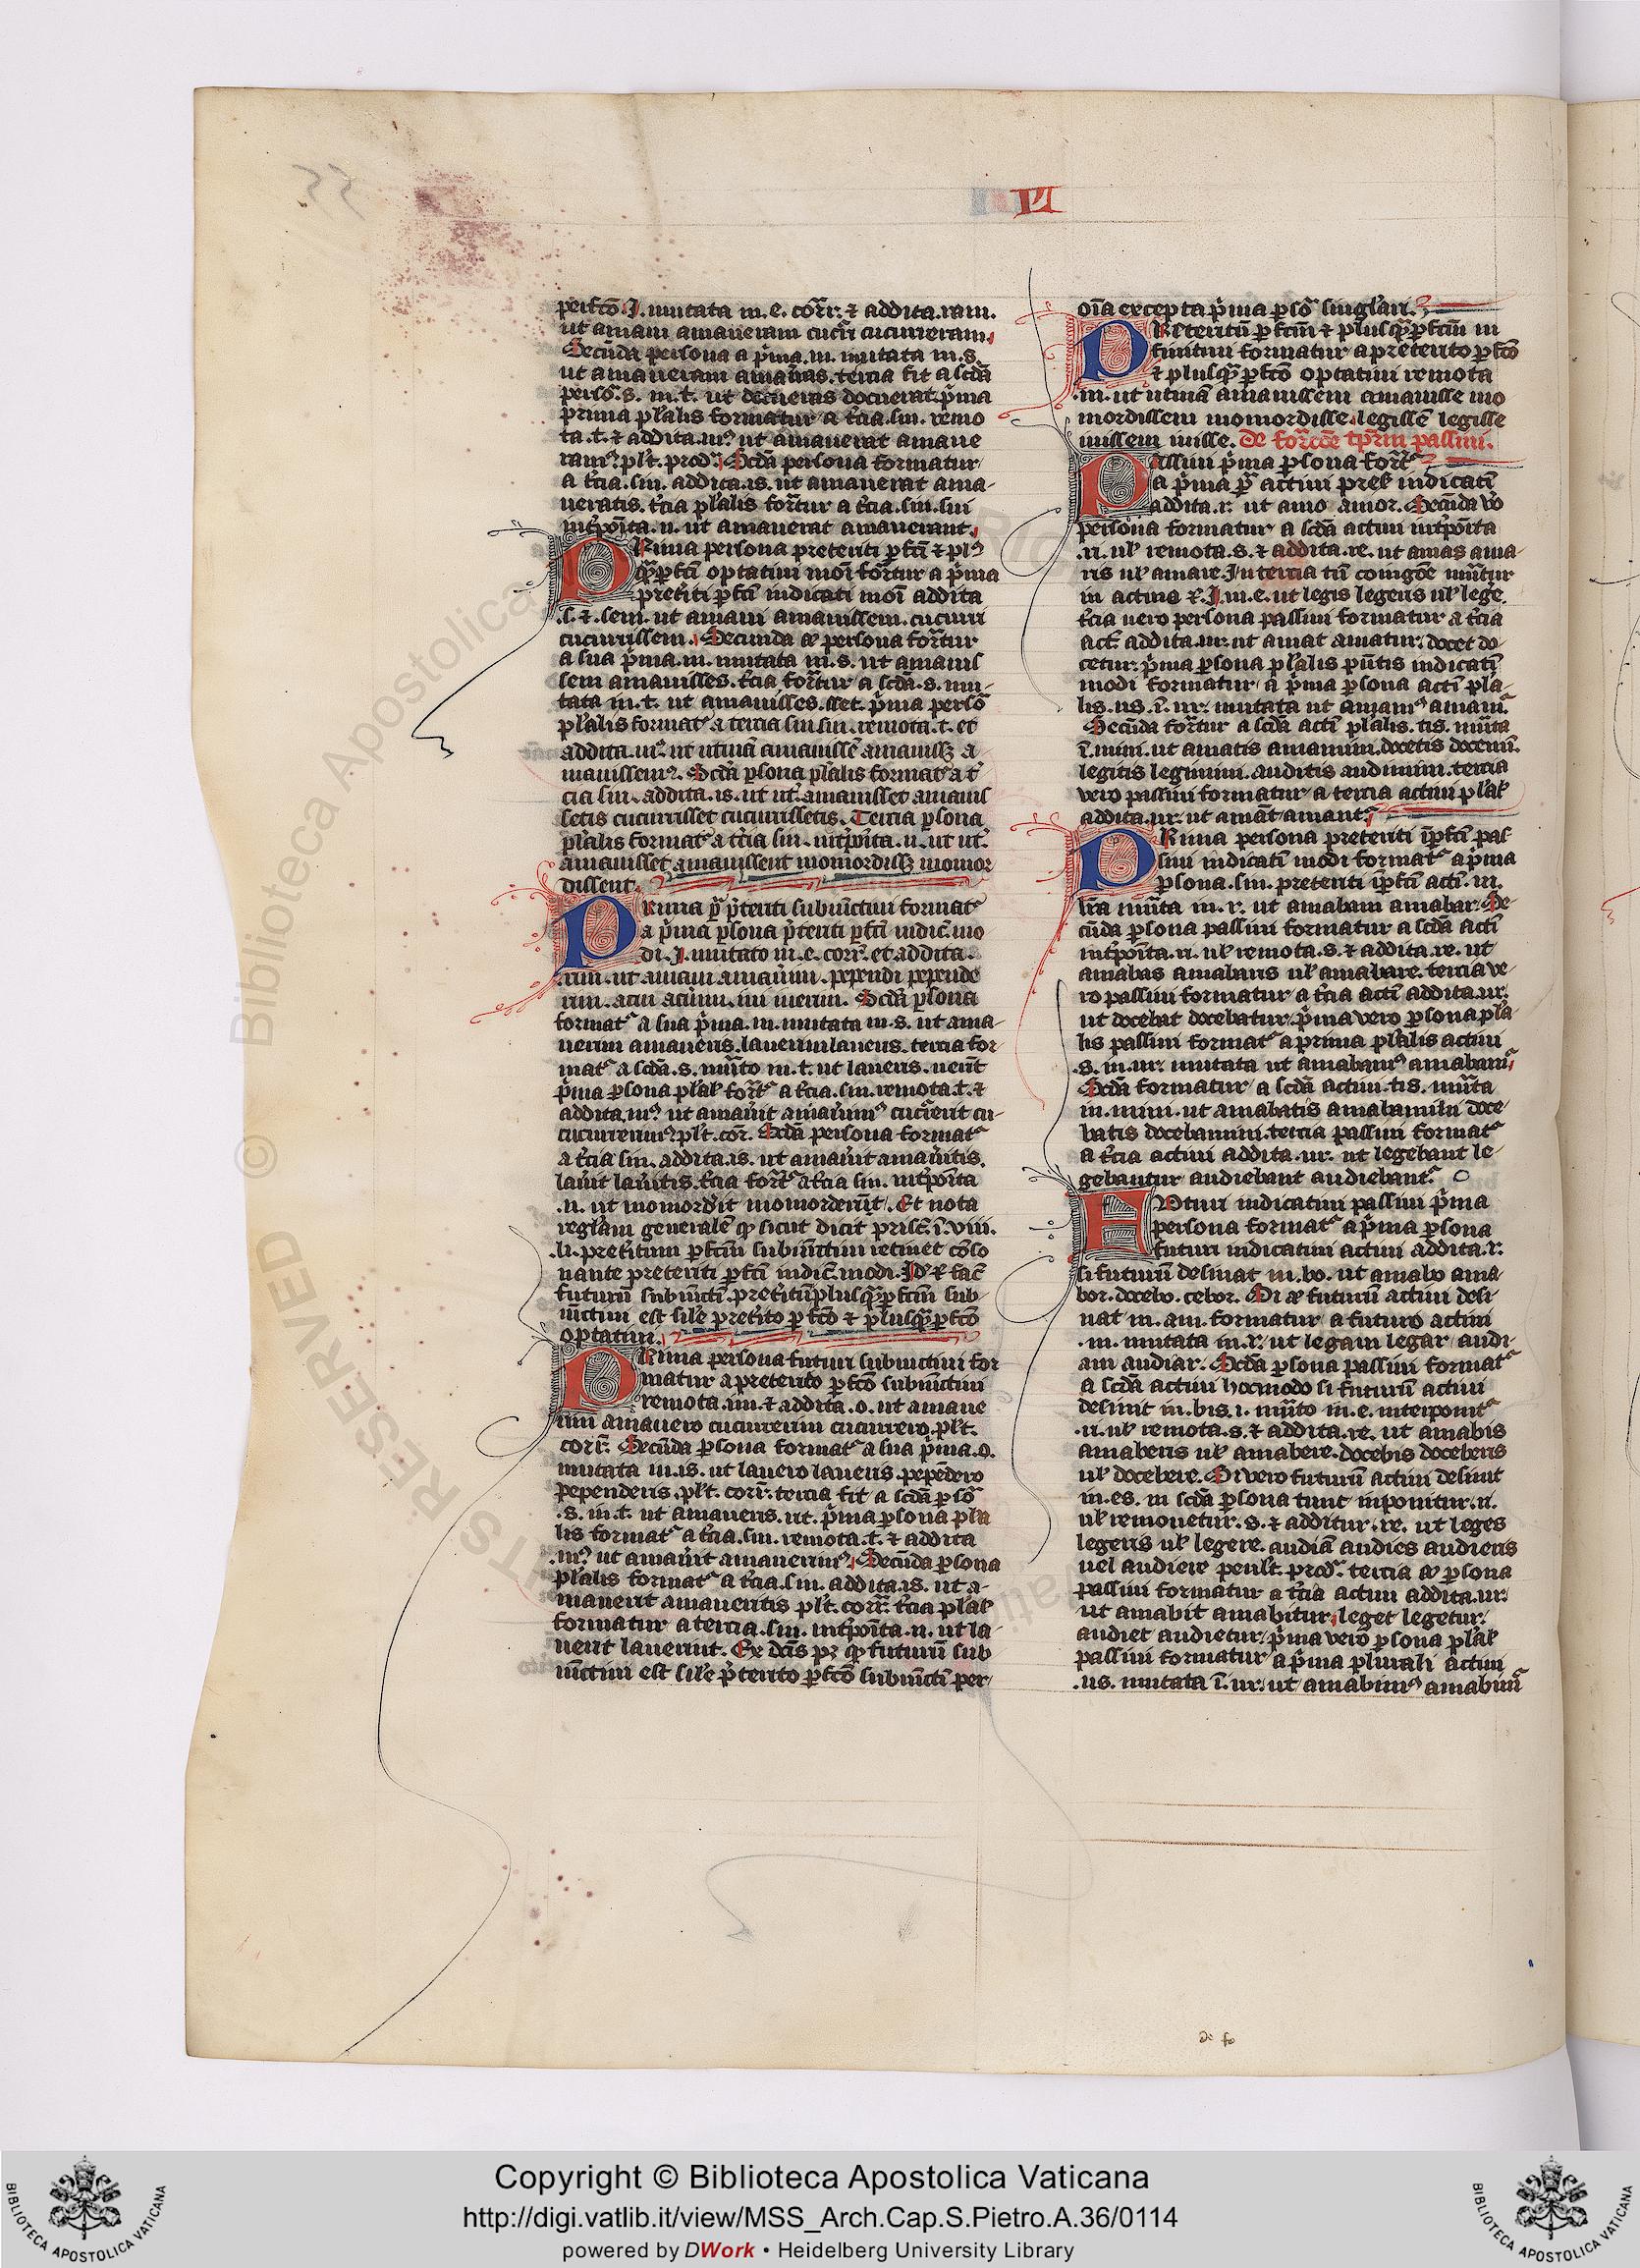 L
perfcō. I. mutata in. e. corr̄. ⁊ addita. ram.
ut amaui amaueram cucur̄i cucurreram.
Secūda persona a p̄ima. m. mutata in. s.
ut amaueram amau̾as. tercia fit a scd̄a
persō. s. in. t. ut docueras docuerat. p̄ima
prima pl̄alis formatur a t̾cia. sin. remo
ta. t. ⁊ addita. mꝰ. ut amauerat amaue
ramꝰ. pl̾t. prod̄. Scd̄a persona formatur
a t̾cia. sin. addita. is. ut amauerat ama-
ueratis. t̾cia pl̄alis for̄tur a t̾cia. sin. sui
int̾po͞ita. n. ut amauerat amauerant.
PRima persona preteriti ꝑfc̄i ⁊ plꝰ
qꝫꝑfc̄i optatiui mōi for̄tur a p̄ima
pret̾iti ꝑfc̄i indicati mōi addita
s. ⁊. sem. ut amaui amauissem. cucurri
cucurrissem. Secunda ū persona for̄tur
a sua p̄ima. m. mutata in. s. ut amauis
sem amauisses. t̾cia for̄tur a scd̄a. s. mu-
tata in. t. ut amauisses. sset. p̄ima persō
pl̄alis format̾ a tercia sui sin. remota. t. et
addita. mꝰ. ut utinā amauissē amauissꝫ a
mauissemꝰ. Scd̄a ꝑsona pl̄alis format̾ a t̾
cia sin. addita. is. ut ut̾. amauisset amauis
setis cucurrisset cucurrissetis. Tercia ꝑsona
pl̄alis format̾ a t̾cia sin. int̾po͞ita. n. ut ut̾.
amauisset amauissent momordissꝫ momor
dissent.
PRima ꝑ p̾teriti subiūctiui format̾
a p̄ima ꝑsona p̾teriti ꝑfc̄i indic̄. mo
di. I. mutato in. e. corr̄. et addita.
rim. ut amaui amau̾im. pependi pepende
rim. acui acu̾im. iui iuerim. Scd̄a ꝑsona
format̾ a sua p̄ima. m. mutata in. s. ut ama-
uerim amaueris. lauerim laueris. tercia for
mat̾ a scd̄a. s. mūto in. t. ut laueris. uerit
p̄ima ꝑsona pl̄al̾ for̄t̾ a t̾cia. sin. remota. t. ⁊
addita. mꝰ. ut amau̾it amau̾imꝰ cucur̾erit cu-
cucurrerimꝰ. pl̾t. cor̄. Scd̄a persona format̾
a t̾cia sin. addita. is. ut amau̾it amau̾itis.
lau̾it lau̾itis. t̾cia for̄t̾ a t̾cia sin. int̾po͞ita
.n. ut momord̾it momorderīt. Et nota
regl̄am generalē ꝙ sicut dicit prisc̄. ī. viii.
li. pret̾itum ꝑfcm̄ subiūctiui retinet cōso
nante preteriti ꝑfc̄i indic̄. modi. Id̄ ⁊ fac̄
futurū subiūcti. pret̾itū plusqꝫꝑfcm̄ sub-
iūctiui est sil̾e pret̾ito ꝑfcō ⁊ plusqꝫꝑfcō
optatiui.
PRima persona futuri subiunctiui for
matur a preterito ꝑfcō subiūctiui
remota. im. ⁊ addita. o. ut amaue
rim amauero cucurrerim cucurrero. pl̾t.
corr̄. Secūda ꝑsona format̾ a sua p̄ima. o.
mutata in. is. ut lauero laueris. pepēdero
pependeris. pl̾t. corr̄. tercia fit a scd̄a ꝑsō
.s. in. t. ut amaueris. rit. p̄ima ꝑsona pla
lis format̾ a t̾cia. sin. remota. t. ⁊ addita
.mꝰ. ut amau̾it amauerimꝰ. Secūda ꝑsona
pl̄alis format̾ a t̾cia. sin. addita. is. ut a-
mauerit amaueritis pl̾t. corr̄. t̾cia pl̄al̾
formatur a tercia. sin. int̾po͞ita. n. ut la-
uerit lauerint. Ex dc̄is pꝫ ꝙ futurū sub
iūctiui est sil̾e p̾terito ꝑfcō subiūcti per
oīa excepta p̄ima ꝑsō singl̾ari.
PReteritū ꝑfcm̄ ⁊ plusqꝫꝑfcm̄ in
finitiui formatur a preterito ꝑfcō
⁊ plusqꝫ ꝑfcō optatiui remota
.m. ut utinā amauissem amauisse mo
mordissem momordisse. legissē legisse
iuissem iuisse. de for̄cōe tp̄rm passiui.
PAssiui p̄ima ꝑsona for̄t̾
a p̄ima ꝑ̄ actiui pres̾ indicati
addita. r. ut amo amor. Secūda ū̊
persona formatur a scd̄a actiui int̾po͞ita
.ri. ul̾ remota. s. ⁊ addita. re. ut amas ama-
ris ul̾ amare. In tercia tn̄ coniug̾ōe mūtur
in actiuo ⁊. I. in. e. ut legis legeris ul̾ lege.
t̾cia uero persona passiui formatur a t̾cia
act̾. addita. ur. ut amat amatur. docet do-
cetur. p̄ima ꝑsona pl̄alis pn̄tis indicati
modi formatur a p̄ima ꝑsona acti pl̄a-
lis. us. ī. ur. mutata ut amamꝰ amam̾.
Secūda for̄tur a scd̄a acti pl̄alis. tis. mūta
ī. mini. ut amatis amamini. docetis docemī.
legitis legimini. auditis audimini. tercia
vero passiui formatur a tercia actiui pl̄al̾
addita. ur. ut amāt amant̾.
PRima persona preteriti īꝑfc̄i pas
siui indicati modi format̾ a p̄ima
ꝑsona. sin. preteriti īꝑfc̄i acti. m.
lr̄a mūta in. r. ut amabam amabar. Se-
cūda ꝑsona passiui formatur a scd̄a acti
int̾po͞ita. ri. ul̾ remota. s. ⁊ addita. re. ut
amabas amabaris ul̾ amabare. tercia ve-
ro passiui formatur a t̾cia acti addita. ur.
ut docebat docebatur. p̄ima vero ꝑsona pl̄a
lis passiui format̾ a prima pl̄alis actiui
.s. in. ur. mutata ut amabamꝰ amabam̾.
Scd̄a formatur a scd̄a actiui. tis. mūta
in. mini. ut amabatis amabamini doce-
batis docebamini. tercia passiui format̾
a t̾cia actiui addita. ur. ut legebant le-
gebantur audiebant audiebant̾.
FUturi indicatiui passiui p̄ima
persona format̾ a p̄ima ꝑsona
futuri indicatiui actiui addita. r.
si futurū desinat in. bo. ut amabo ama-
bor. docebo. cebor. Si ū futurū actiui desi-
nat in. am. formatur a futuro actiui
.m. mutata in. r. ut legam legar audi-
am audiar. Scd̄a ꝑsona passiui format̾
a scd̄a actiui hocmodo si futurū actiui
desinit in. bis. i. mūto in. e. interponit̾
.ri. ul̾ remota. s. ⁊ addita. re. ut amabis
amaberis ul̾ amabere. docebis doceberis
ul̾ docebere. Si vero futurū actiui desinit
in. es. in scd̄a ꝑsona tunc inponitur. ri.
ul̾ remouetur. s. ⁊ additur. re. ut leges
legeris ul̾ legere. audiā audies audieris
uel audiere penl̾t. prod̄. tercia ū ꝑsona
passiui formatur a t̾cia actiui addita. ur.
ut amabit amabitur. leget legetur.
audiet audietur. p̄ima vero ꝑsona pl̄al̾
passiui formatur a p̄ima plurali actiui
.us. mutata ī. ur. ut amabimꝰ amabim̾
de fo
Copyright © Biblioteca Apostolica Vaticana
http://digi.vatlib.it/view/MSS_Arch.Cap.S.Pietro.A.36/0114
powered by DWork • Heidelberg University Library
BIBLIOTECA APOSTOLICA VATICANA
BIBLIOTECA APOSTOLICA VATICANA